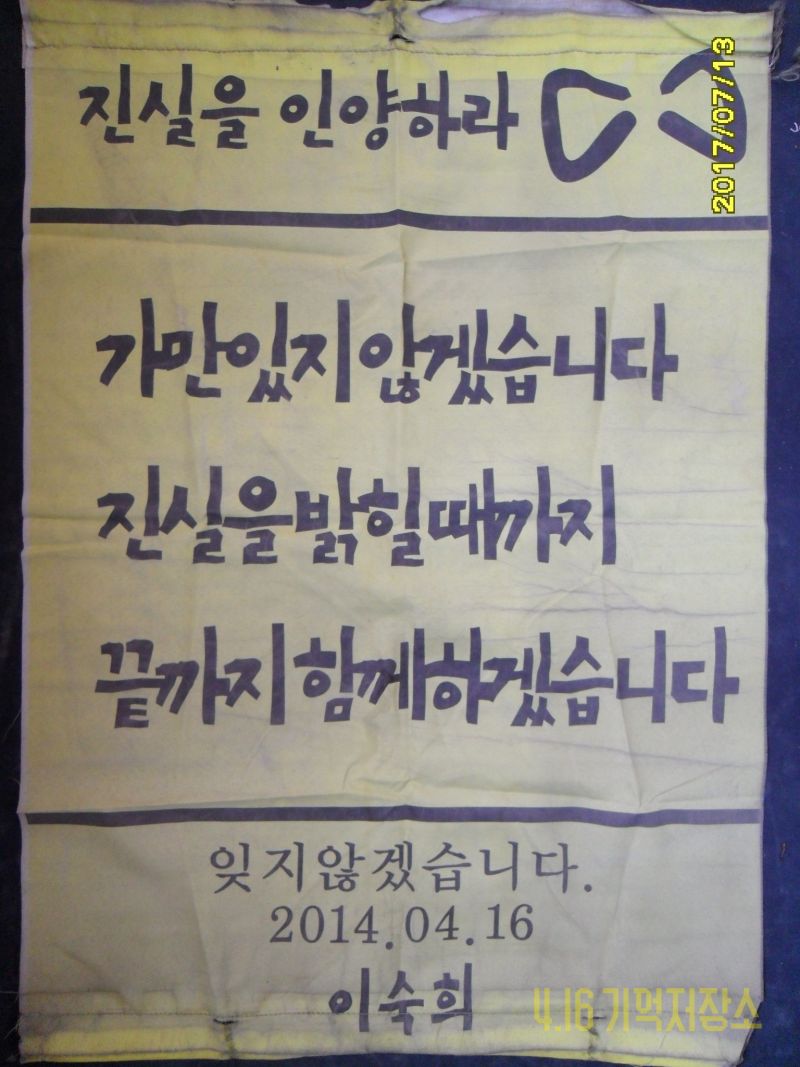 진실을 인양하라
2017/07/13
가만있지않겠습니다
진실을밝힐때까지
끝까지함께하겠습니다
잊지않겠습니다.
2014.04.16
이숙희
4.16기억저장소